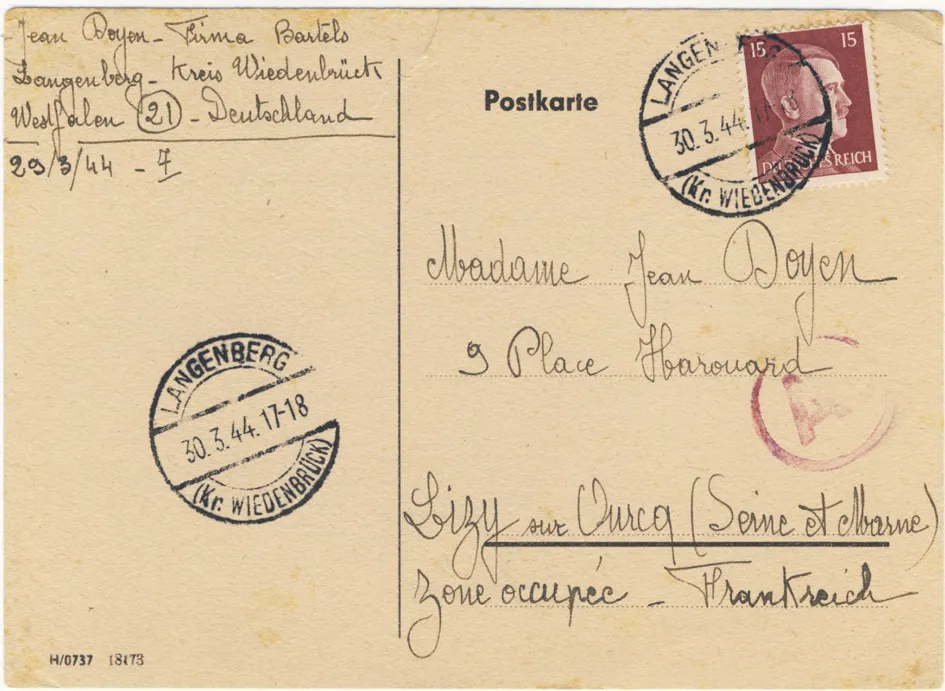 Jean Doyen - Firma Bartels
Langenberg - Kreis Wiedenbrück
Westfalen (21) - Deutschland
29/3/44 - 7
Postkarte
15 15
DEUTSCHES REICH
LANGENBERG
30.3.44.17-18
(Kr. WIEDENBRÜCK)
Madame Jean Doyen
9 Place Harouard
Lizy sur Ourcq (Seine et Marne)
Zone occupée - Frankreich
LANGENBERG
30.3.44.17-18
(Kr. WIEDENBRÜCK)
H/0737 18173